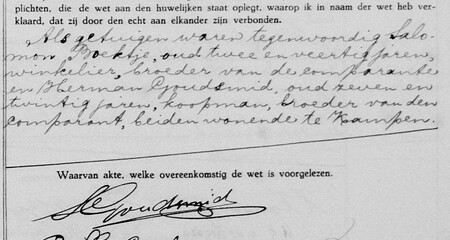 plichten, die de wet aan den huwelijken staat oplegt, waarop ik in naam der wet heb ver-
klaard, dat zij door den echt aan elkander zijn verbonden.
Als getuigen waren tegenwoordig Salo-
mon Boektje, oud twee en veertig jaren,
winkelier, broeder van de comparante
en Herman Goudsmid, oud zeven en
twintig jaren, koopman, broeder van den
comparant, beiden wonende te Kampen.
Waarvan akte, welke overeenkomstig de wet is voorgelezen.
Goudsmid